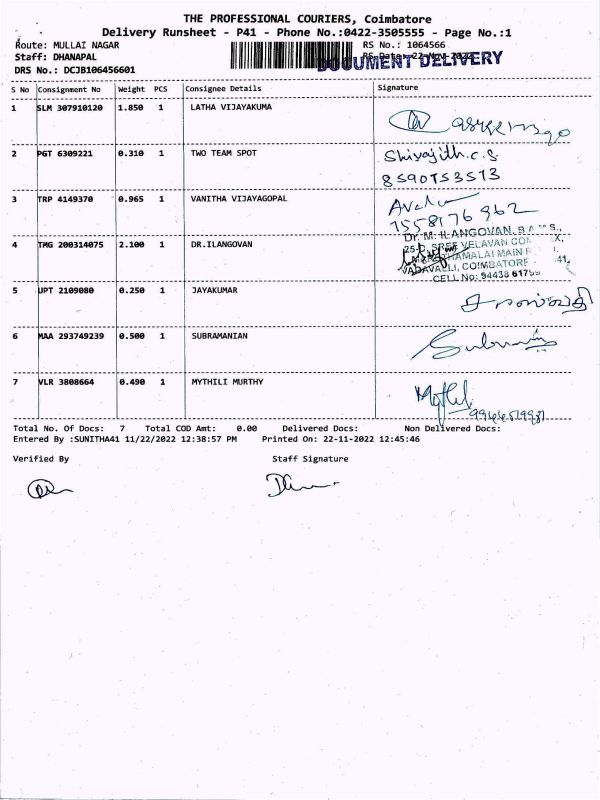 THE PROFESSIONAL COURIERS, Coimbatore
Delivery Runsheet - P41 - Phone No.:0422-3505555 - Page No.:1
Route: MULLAI NAGAR RS No.: 1064566
Staff: DHANAPAL RS Date: 22-Nov-2022
DOCUMENT DELIVERY
DRS No.: DCJB106456601
S No Consignment No Weight PCS Consignee Details Signature
1 SLM 307910120 1.850 1 LATHA VIJAYAKUMA
2 PGT 6309221 0.310 1 TWO TEAM SPOT Shivajith.c.s
8590153513
3 TRP 4149370 0.965 1 VANITHA VIJAYAGOPAL
7558176962
4 TMG 200314075 2.100 1 DR.ILANGOVAN Dr. M. ILANGOVAN,
SREE VELAVAN
MAIN
VADAVALLI, COIMBATORE 41.
CELL No: 94438
5 UPT 2109080 0.250 1 JAYAKUMAR
6 MAA 293749239 0.500 1 SUBRAMANIAN
7 VLR 3808664 0.490 1 MYTHILI MURTHY
Total No. Of Docs: 7 Total COD Amt: 0.00 Delivered Docs: Non Delivered Docs:
Entered By :SUNITHA41 11/22/2022 12:38:57 PM Printed On: 22-11-2022 12:45:46
Verified By Staff Signature